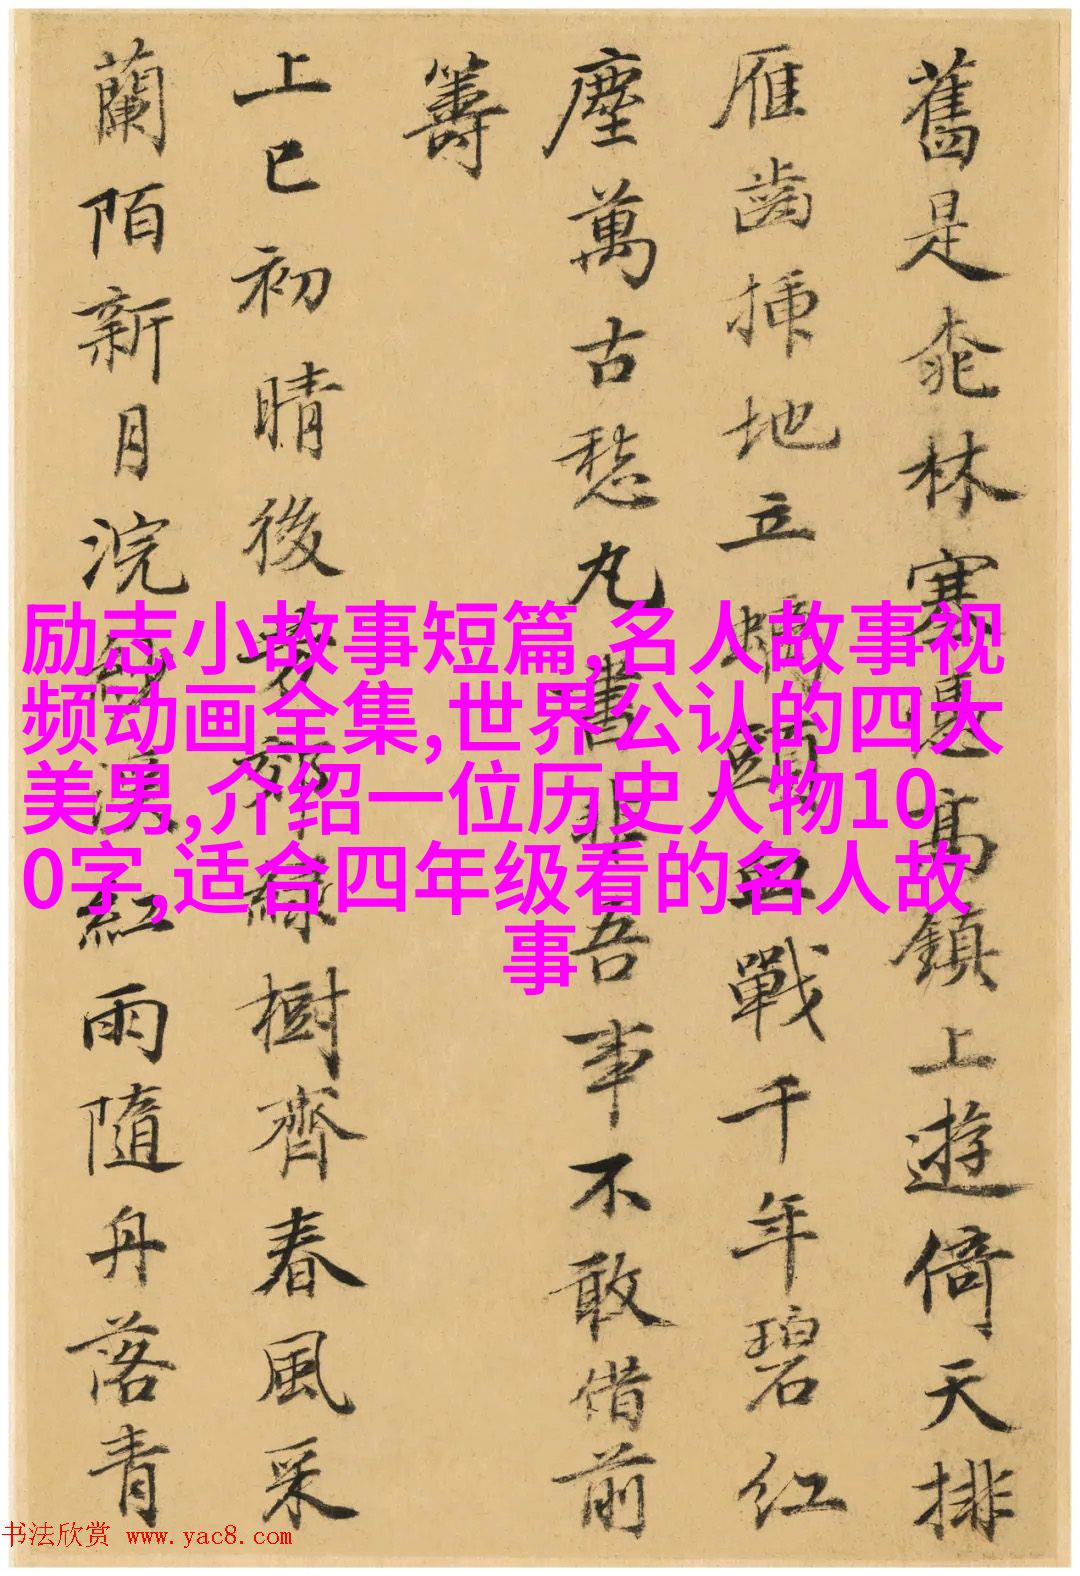 舊是桃林塞憑高鎮上遊倚天排
雁齒插地立頭血戰千年碧紅
塵萬古愁丸書非吾事不敢借前
籌
上巳初晴後芳郊綠樹齊春風采
蘭陌新月浣溪紅雨隨丹落青
励志小故事短篇,名人故事视
频动画全集,世界公认的四大
美男,介绍一位历史人物10
0字,适合四年级看的名人故
事
书法欣赏 www.yac8.com